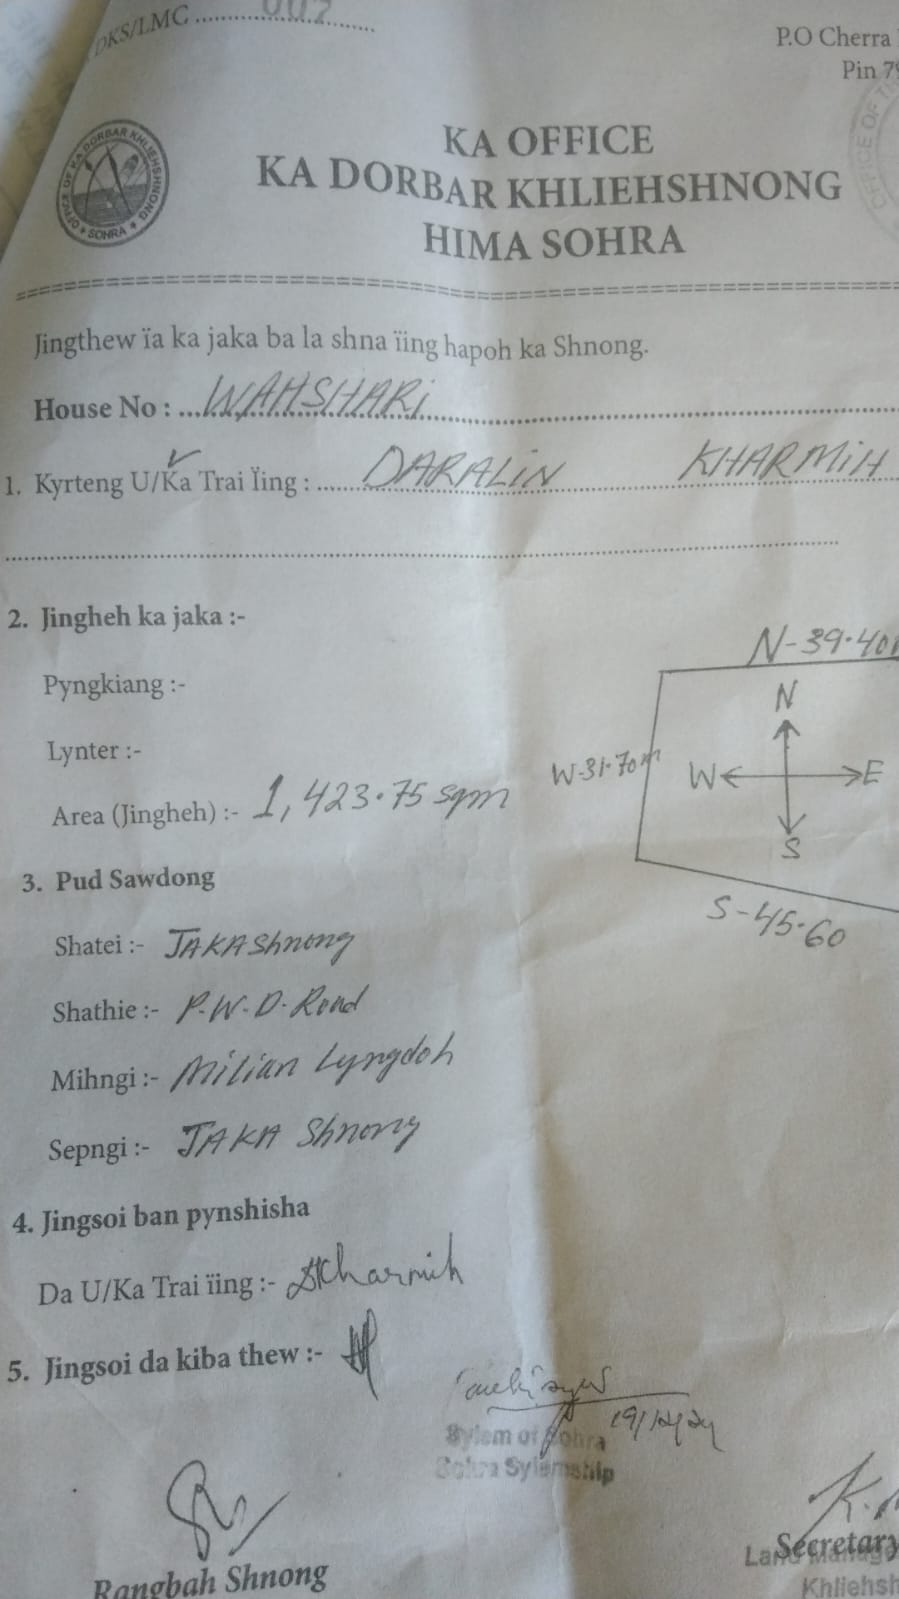 DKS/LMC ........007........
P.O Cherra
Pin 79
OFFICE OF KA DORBAR KHLIEHSHNONG
SOHRA
OFFICE OF TH
KA OFFICE
KA DORBAR KHLIEHSHNONG
HIMA SOHRA
Jingthew ïa ka jaka ba la shna ïing hapoh ka Shnong.
House No : ...WAHSHARI
1. Kyrteng U/Ka Trai Ïing : ...... DARALIN KHARMIH
2. Jingheh ka jaka :-
N-39.40
Pyngkiang :-
N
Lynter :-
W-31.70m
W E
Area (Jingheh) :- 1,423.75 sqm
S
3. Pud Sawdong
S-45.60
Shatei :- JAKA Shnong
Shathie :- P.W.D. Road
Mihngi :- Milian Lyngdoh
Sepngi :- JAKA Shnong
4. Jingsoi ban pynshisha
Da U/Ka Trai ïing :- DKharmih
5. Jingsoi da kiba thew :-
19/12/24
Syiem of Sohra
Sohra Syiemship
Rangbah Shnong
Secretary
Land Manage
Khliehsh